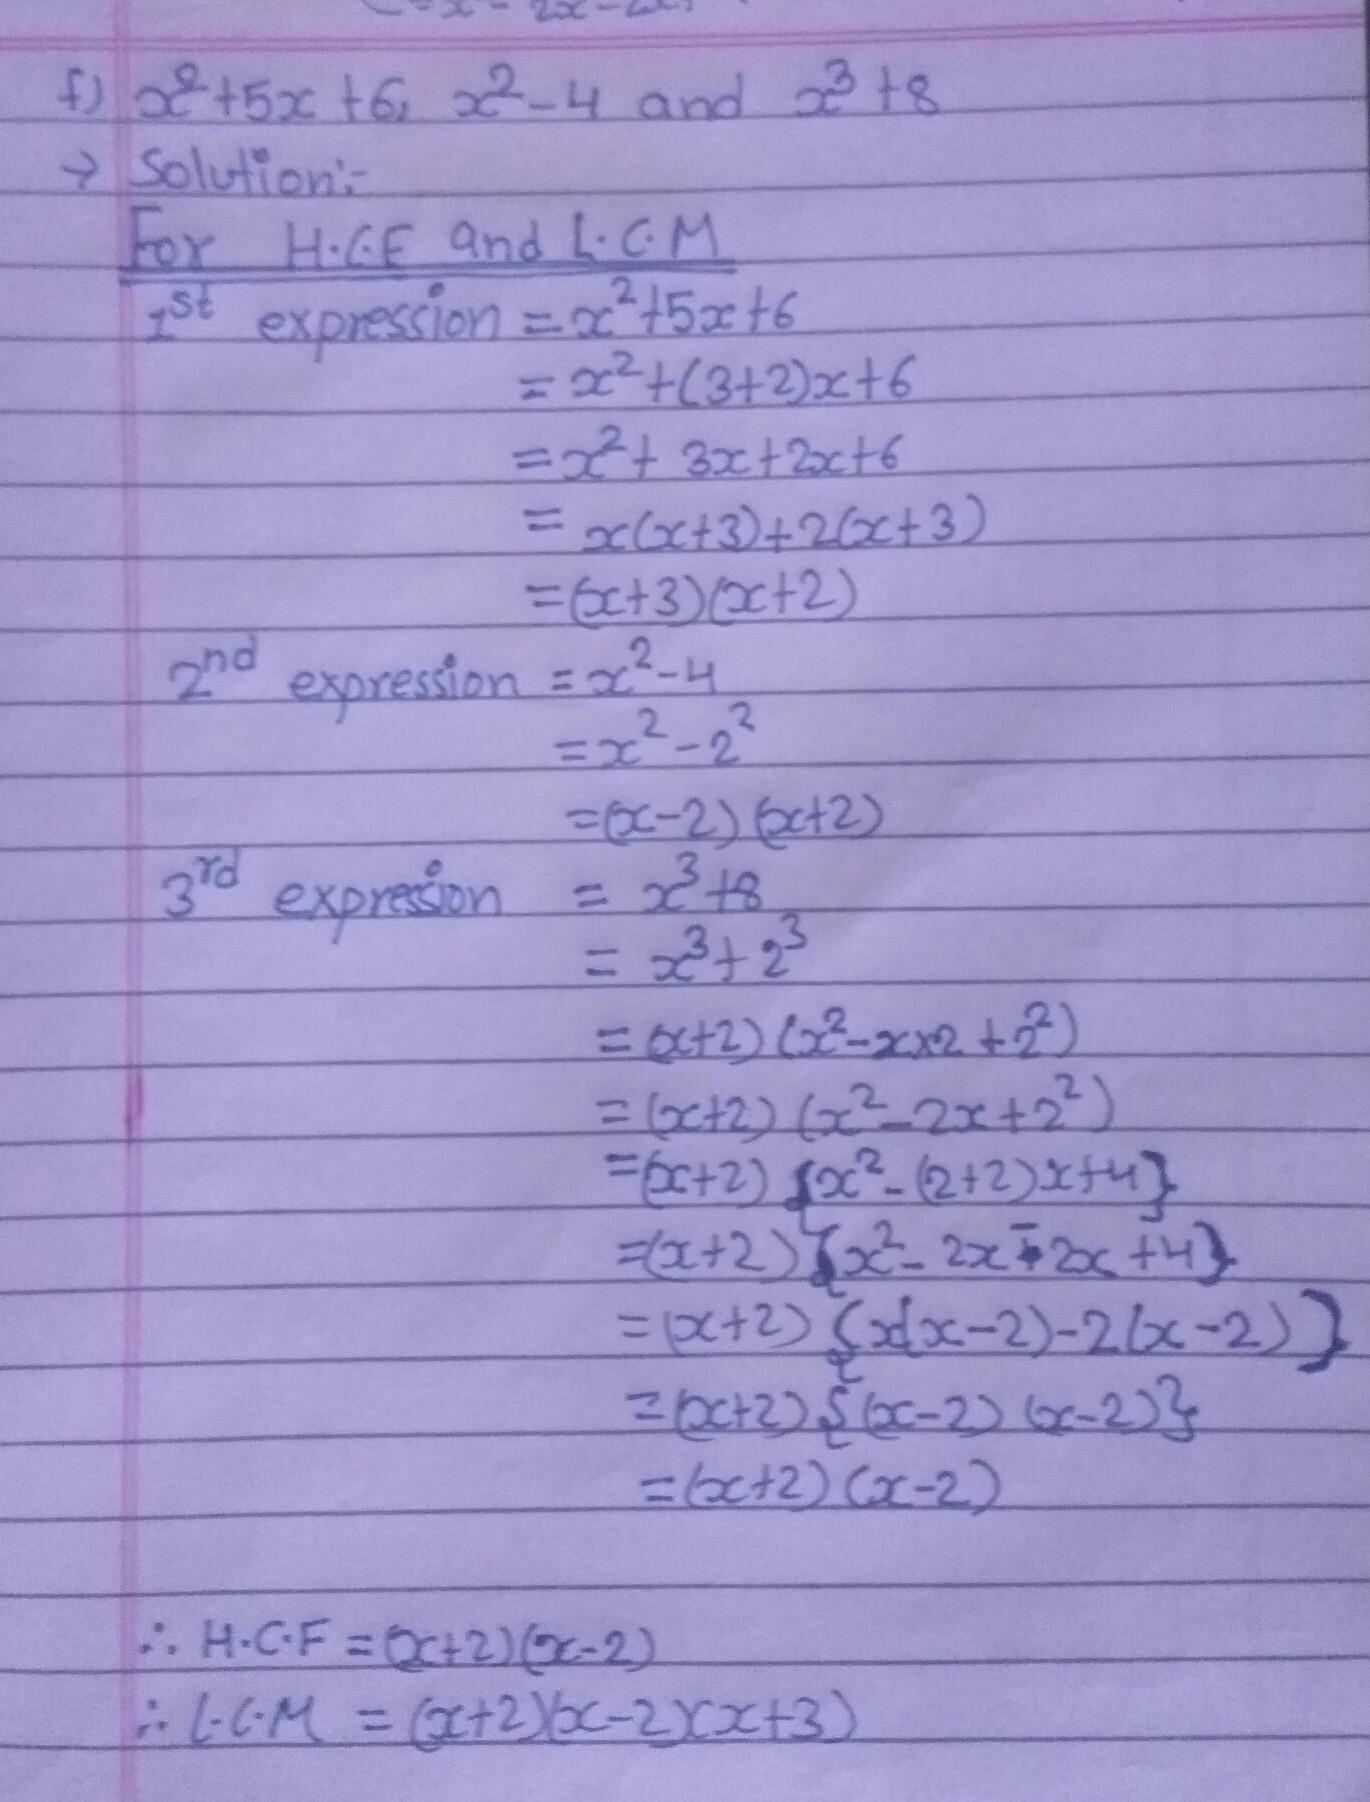 f) x²+5x+6, x²-4 and x³+8
→ Solution:-
For H.C.F and L.C.M
1st expression = x²+5x+6
= x²+(3+2)x+6
= x²+ 3x+2x+6
= x(x+3)+2(x+3)
=(x+3)(x+2)
2nd expression = x²-4
= x²-2²
=(x-2)(x+2)
3rd expression = x³+8
= x³+2³
= (x+2)(x²-x×2+2²)
= (x+2)(x²-2x+2²)
=(x+2){x²-(2+2)x+4}
=(x+2){x²-2x-2x+4}
= (x+2){x(x-2)-2(x-2)}
= (x+2){(x-2)(x-2)}
=(x+2)(x-2)
∴ H.C.F = (x+2)(x-2)
∴ L.C.M = (x+2)(x-2)(x+3)